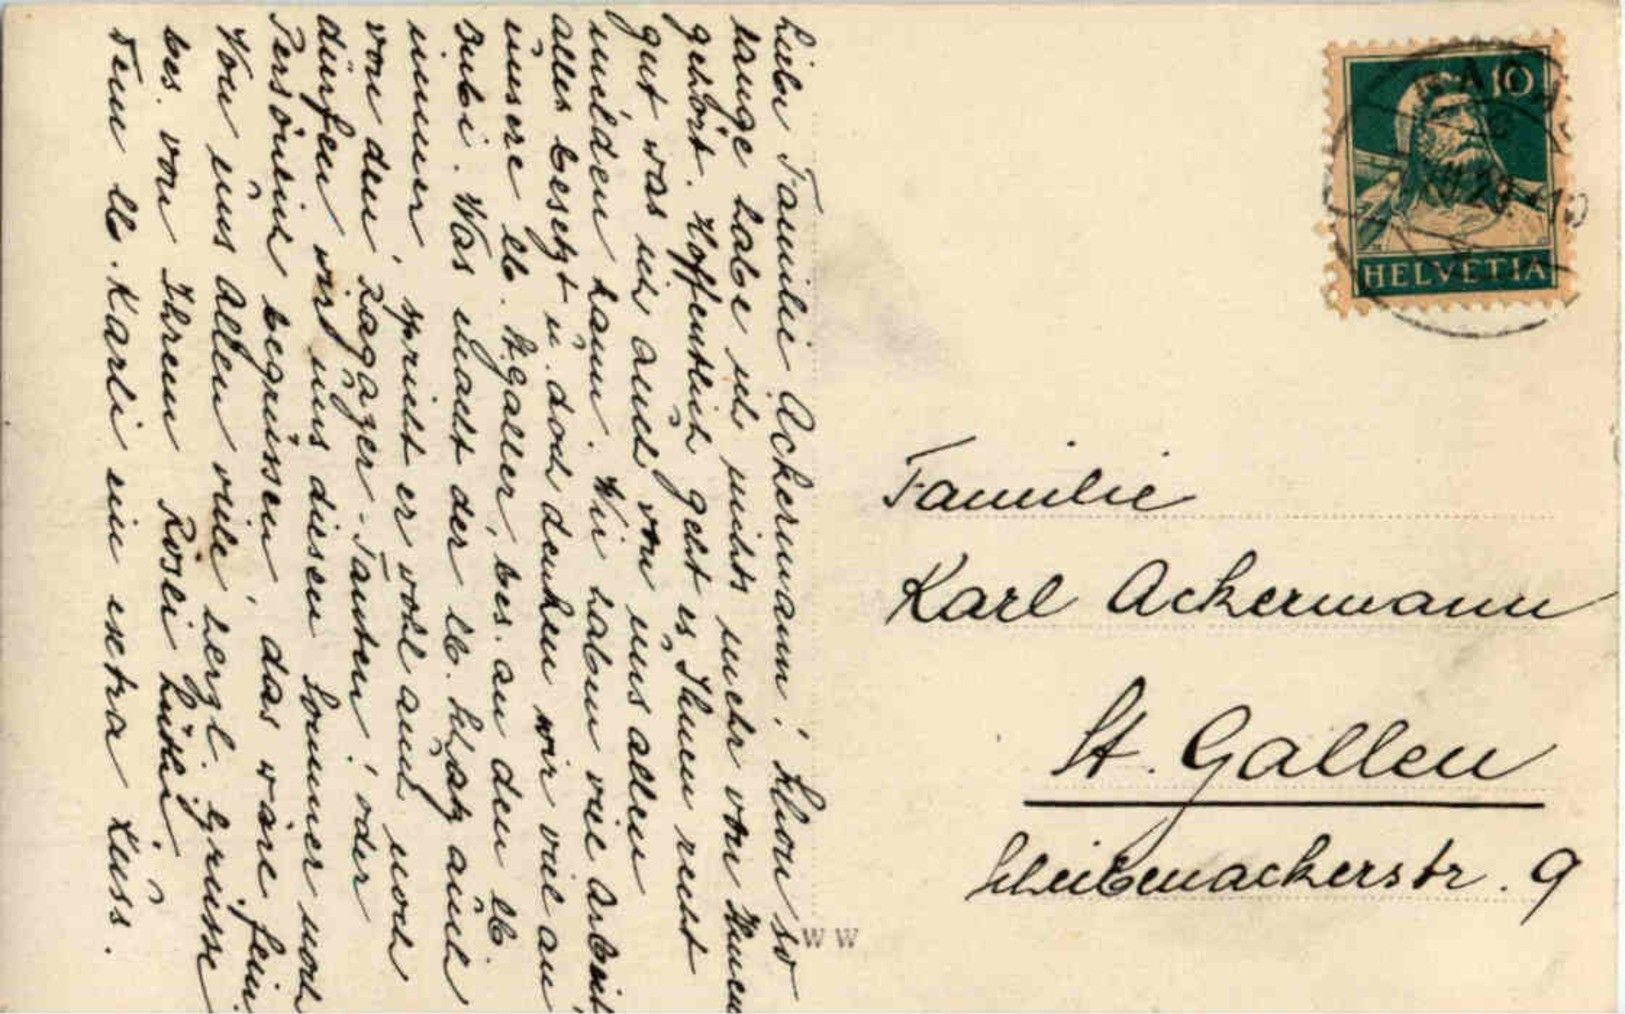 Liebe Familie Ackermann! Schon so
lange habe ich nichts mehr von Ihnen
gehört. Hoffentlich geht es Ihnen recht
gut was ich auch von uns allen
melden kann. Wir haben viel Arbeit,
alles besetzt u. doch denken wir viel an
unsere lb. St. Galler, bes. an den lb.
Bubi. Was macht der lb. Schatz auch
immer, spricht er wohl auch noch
von den Ragazer-Tanten! oder
dürfen wir uns diesen Sommer noch
Persönlich begrüssen, das wäre fein.
Von uns allen viele herzl. Grüsse
bes. von Ihrem Rösli Lüthi.
Dem lb. Karli ein extra Kuss.
10
HELVETIA
Familie
Karl Ackermann
St. Gallen
Scheibenackerstr. 9
W W